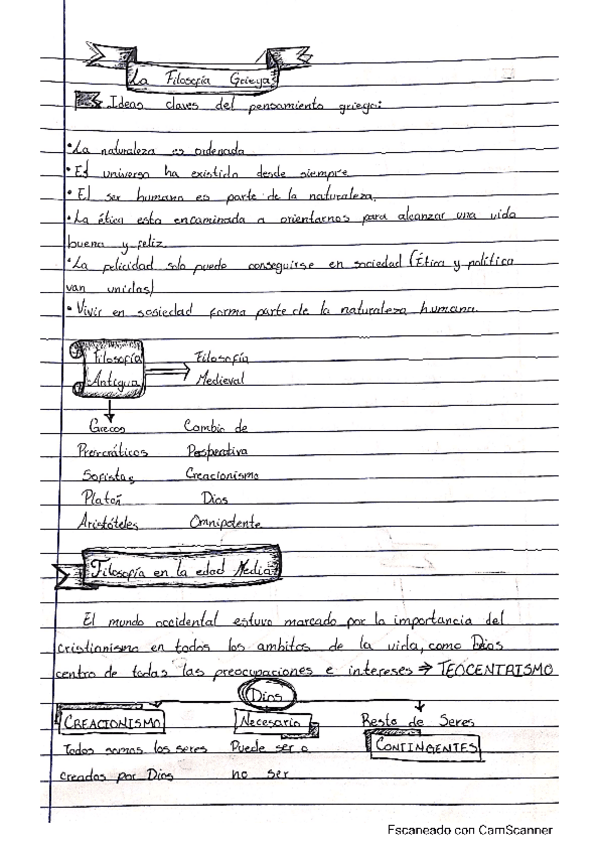 La Filosofía Griega
Ideas claves del pensamiento griego:
• La naturaleza es ordenada
• El universo ha existido desde siempre
• El ser humano es parte de la naturaleza.
• La ética esta encaminada a orientarnos para alcanzar una vida
buena y feliz.
• La felicidad solo puede conseguirse en sociedad (Ética y política
van unidas)
• Vivir en sosiedad forma parte de la naturaleza humana.
Filosofía Filosofía
Antigua Medieval
Grecos Cambio de
Presocráticos Perspectiva
Sofistas Creacionismo
Platón Dios
Aristóteles Omnipotente
Filosofía en la edad Media
El mundo occidental estuvo marcado por la importancia del
cristianismo en todos los ambitos de la vida, como Dios
centro de todas las preocupaciones e intereses → TEOCENTRISMO
Dios
CREACIONISMO Necesario Resto de Seres
Todos somos los seres Puede ser o CONTINGENTES
creados por Dios no ser
Escaneado con CamScanner